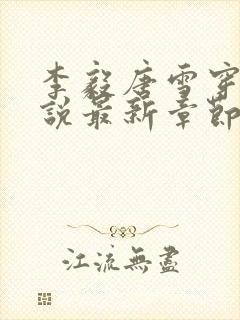 李毅唐雪穿
說最新章節
江流無盡